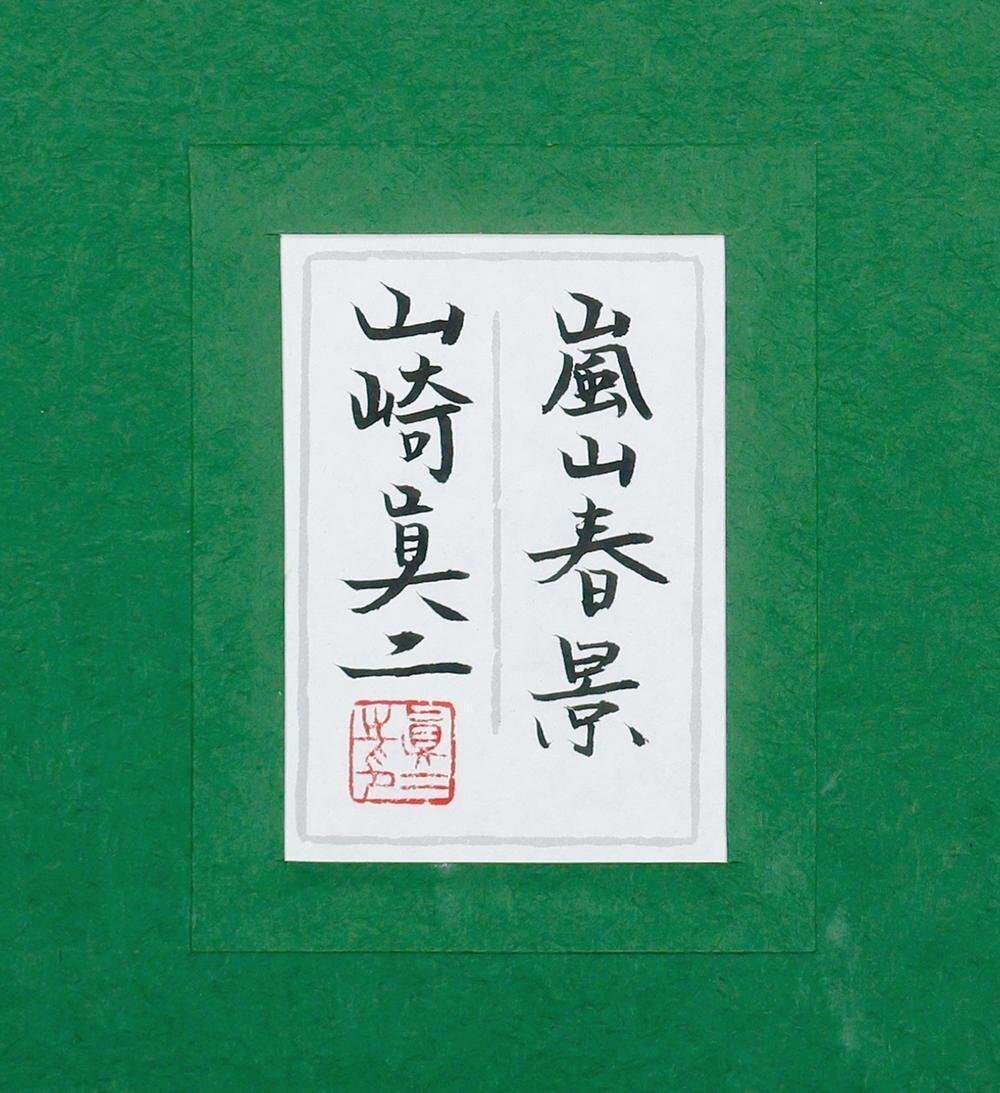 嵐山春景
山崎眞二